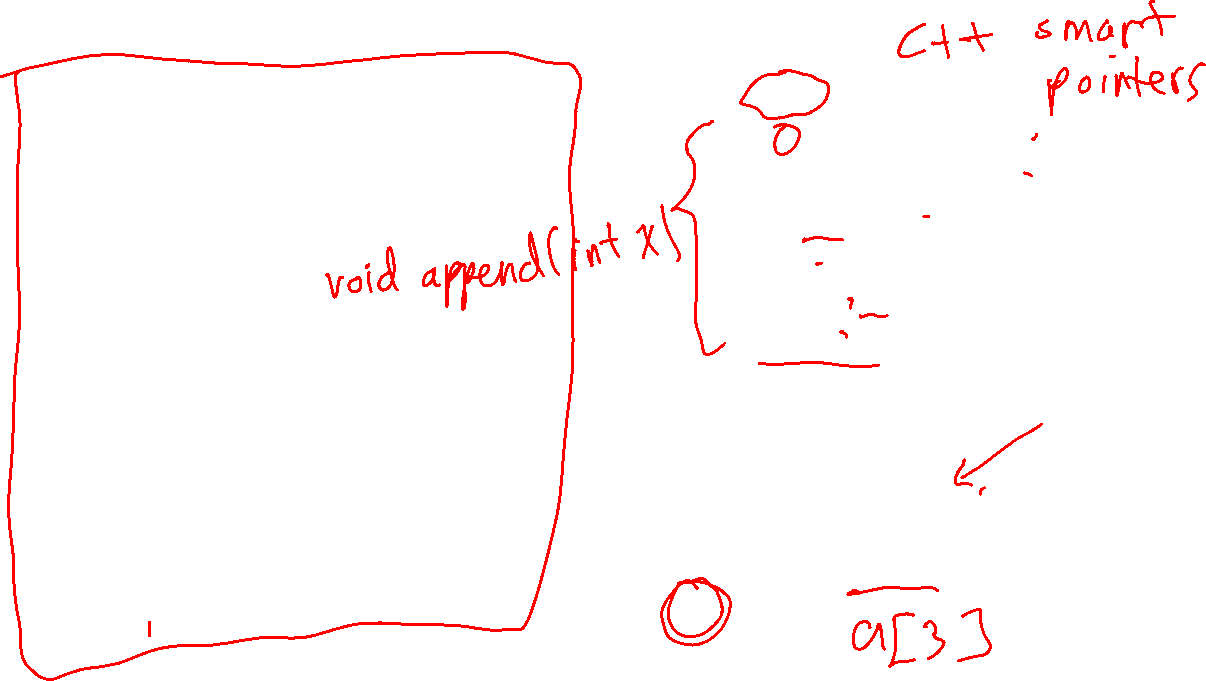 C++ smart
pointers
void append(int x)
a[3]